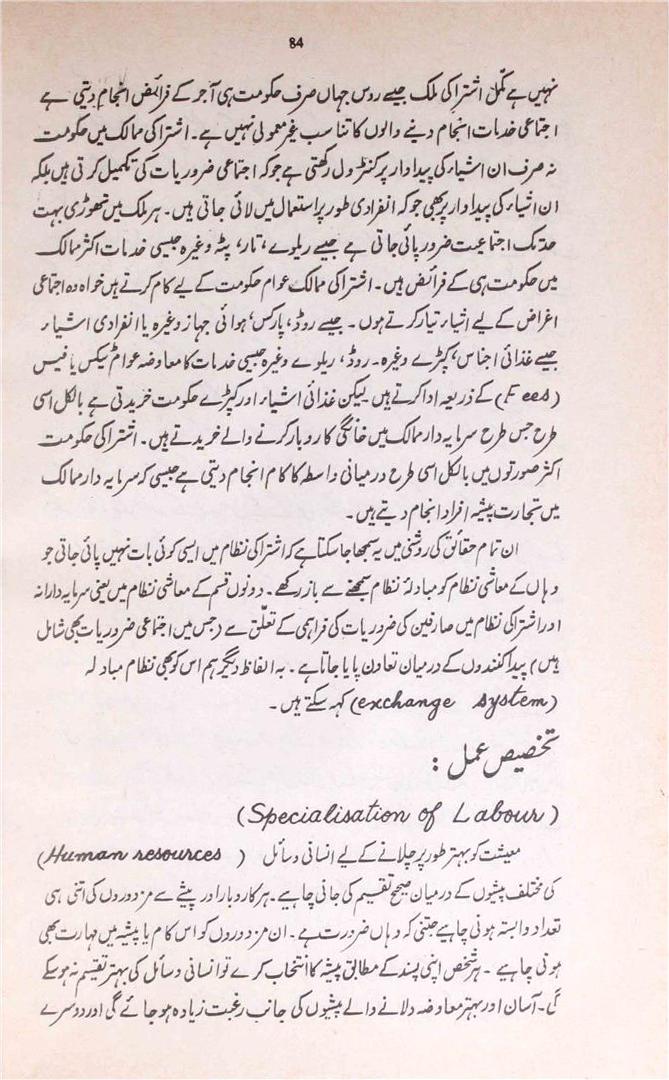 84
نہیں ہے مکمل اشتراکی ملک جیسے روس جہاں صرف حکومت ہی آجر کے فرائض انجام دیتی ہے
اجتماعی خدمات انجام دینے والوں کا تناسب غیر معمولی نہیں ہے۔ اشتراکی ممالک میں حکومت
نہ صرف ان اشیاء کی پیداوار پر کنٹرول رکھتی ہے جو کہ اجتماعی ضروریات کی تکمیل کرتی ہیں بلکہ
ان اشیاء کی پیداوار پر بھی جو کہ انفرادی طور پر استعمال میں لائی جاتی ہیں۔ ہر ملک میں تھوڑی بہت
حد تک اجتماعیت ضرور پائی جاتی ہے جیسے ریلوے، تار، پٹہ وغیرہ جیسی خدمات اکثر ممالک
میں حکومت ہی کے فرائض ہیں۔ اشتراکی ممالک عوام حکومت کے لیے کام کرتے ہیں خواہ وہ اجتماعی
اغراض کے لیے اشیاء تیار کرتے ہوں۔ جیسے روڈ، پارکس، ہوائی جہاز وغیرہ یا انفرادی اشیاء
جیسے غذائی اجناس، کپڑے وغیرہ۔ روڈ، ریلوے وغیرہ جیسی خدمات کا معاوضہ عوام ٹیکس یا فیس
(Fees) کے ذریعہ ادا کرتے ہیں لیکن غذائی اشیاء اور کپڑے حکومت خریدتی ہے بالکل اسی
طرح جس طرح سرمایہ دار ممالک میں خانگی کاروبار کرنے والے خریدتے ہیں۔ اشتراکی حکومت
اکثر صورتوں میں بالکل اسی طرح درمیانی واسطہ کا کام انجام دیتی ہے جیسی کہ سرمایہ دار ممالک
میں تجارت پیشہ افراد انجام دیتے ہیں۔
ان تمام حقائق کی روشنی میں یہ سمجھا جا سکتا ہے کہ اشتراکی نظام میں ایسی کوئی بات نہیں پائی جاتی جو
وہاں کے معاشی نظام کو مبادلۂ نظام سمجھنے سے باز رکھے۔ دونوں قسم کے معاشی نظام میں یعنی سرمایہ دارانہ
اور اشتراکی نظام میں صارفین کی ضروریات کی فراہمی کے تعلق سے (جس میں اجتماعی ضروریات بھی شامل
ہیں) پیدا کنندوں کے درمیان تعاون پایا جاتا ہے۔ بہ الفاظ دیگر ہم اس کو بھی نظام مبادلہ
(exchange system) کہہ سکتے ہیں۔
تخصیص عمل :
(Specialisation of Labour)
معیشت کو بہتر طور پر چلانے کے لیے انسانی وسائل (Human resources)
کی مختلف پیشوں کے درمیان صحیح تقسیم کی جانی چاہیے۔ ہر کاروبار اور پیشے سے مزدوروں کی اتنی ہی
تعداد وابستہ ہونی چاہیے جتنی کہ وہاں ضرورت ہے۔ ان مزدوروں کو اس کام یا پیشہ میں مہارت بھی
ہونی چاہیے۔ ہر شخص اپنی پسند کے مطابق پیشہ کا انتخاب کرے تو انسانی وسائل کی بہتر تقسیم نہ ہو سکے
گی۔ آسان اور بہتر معاوضہ دلانے والے پیشوں کی جانب رغبت زیادہ ہو جائے گی اور دوسرے